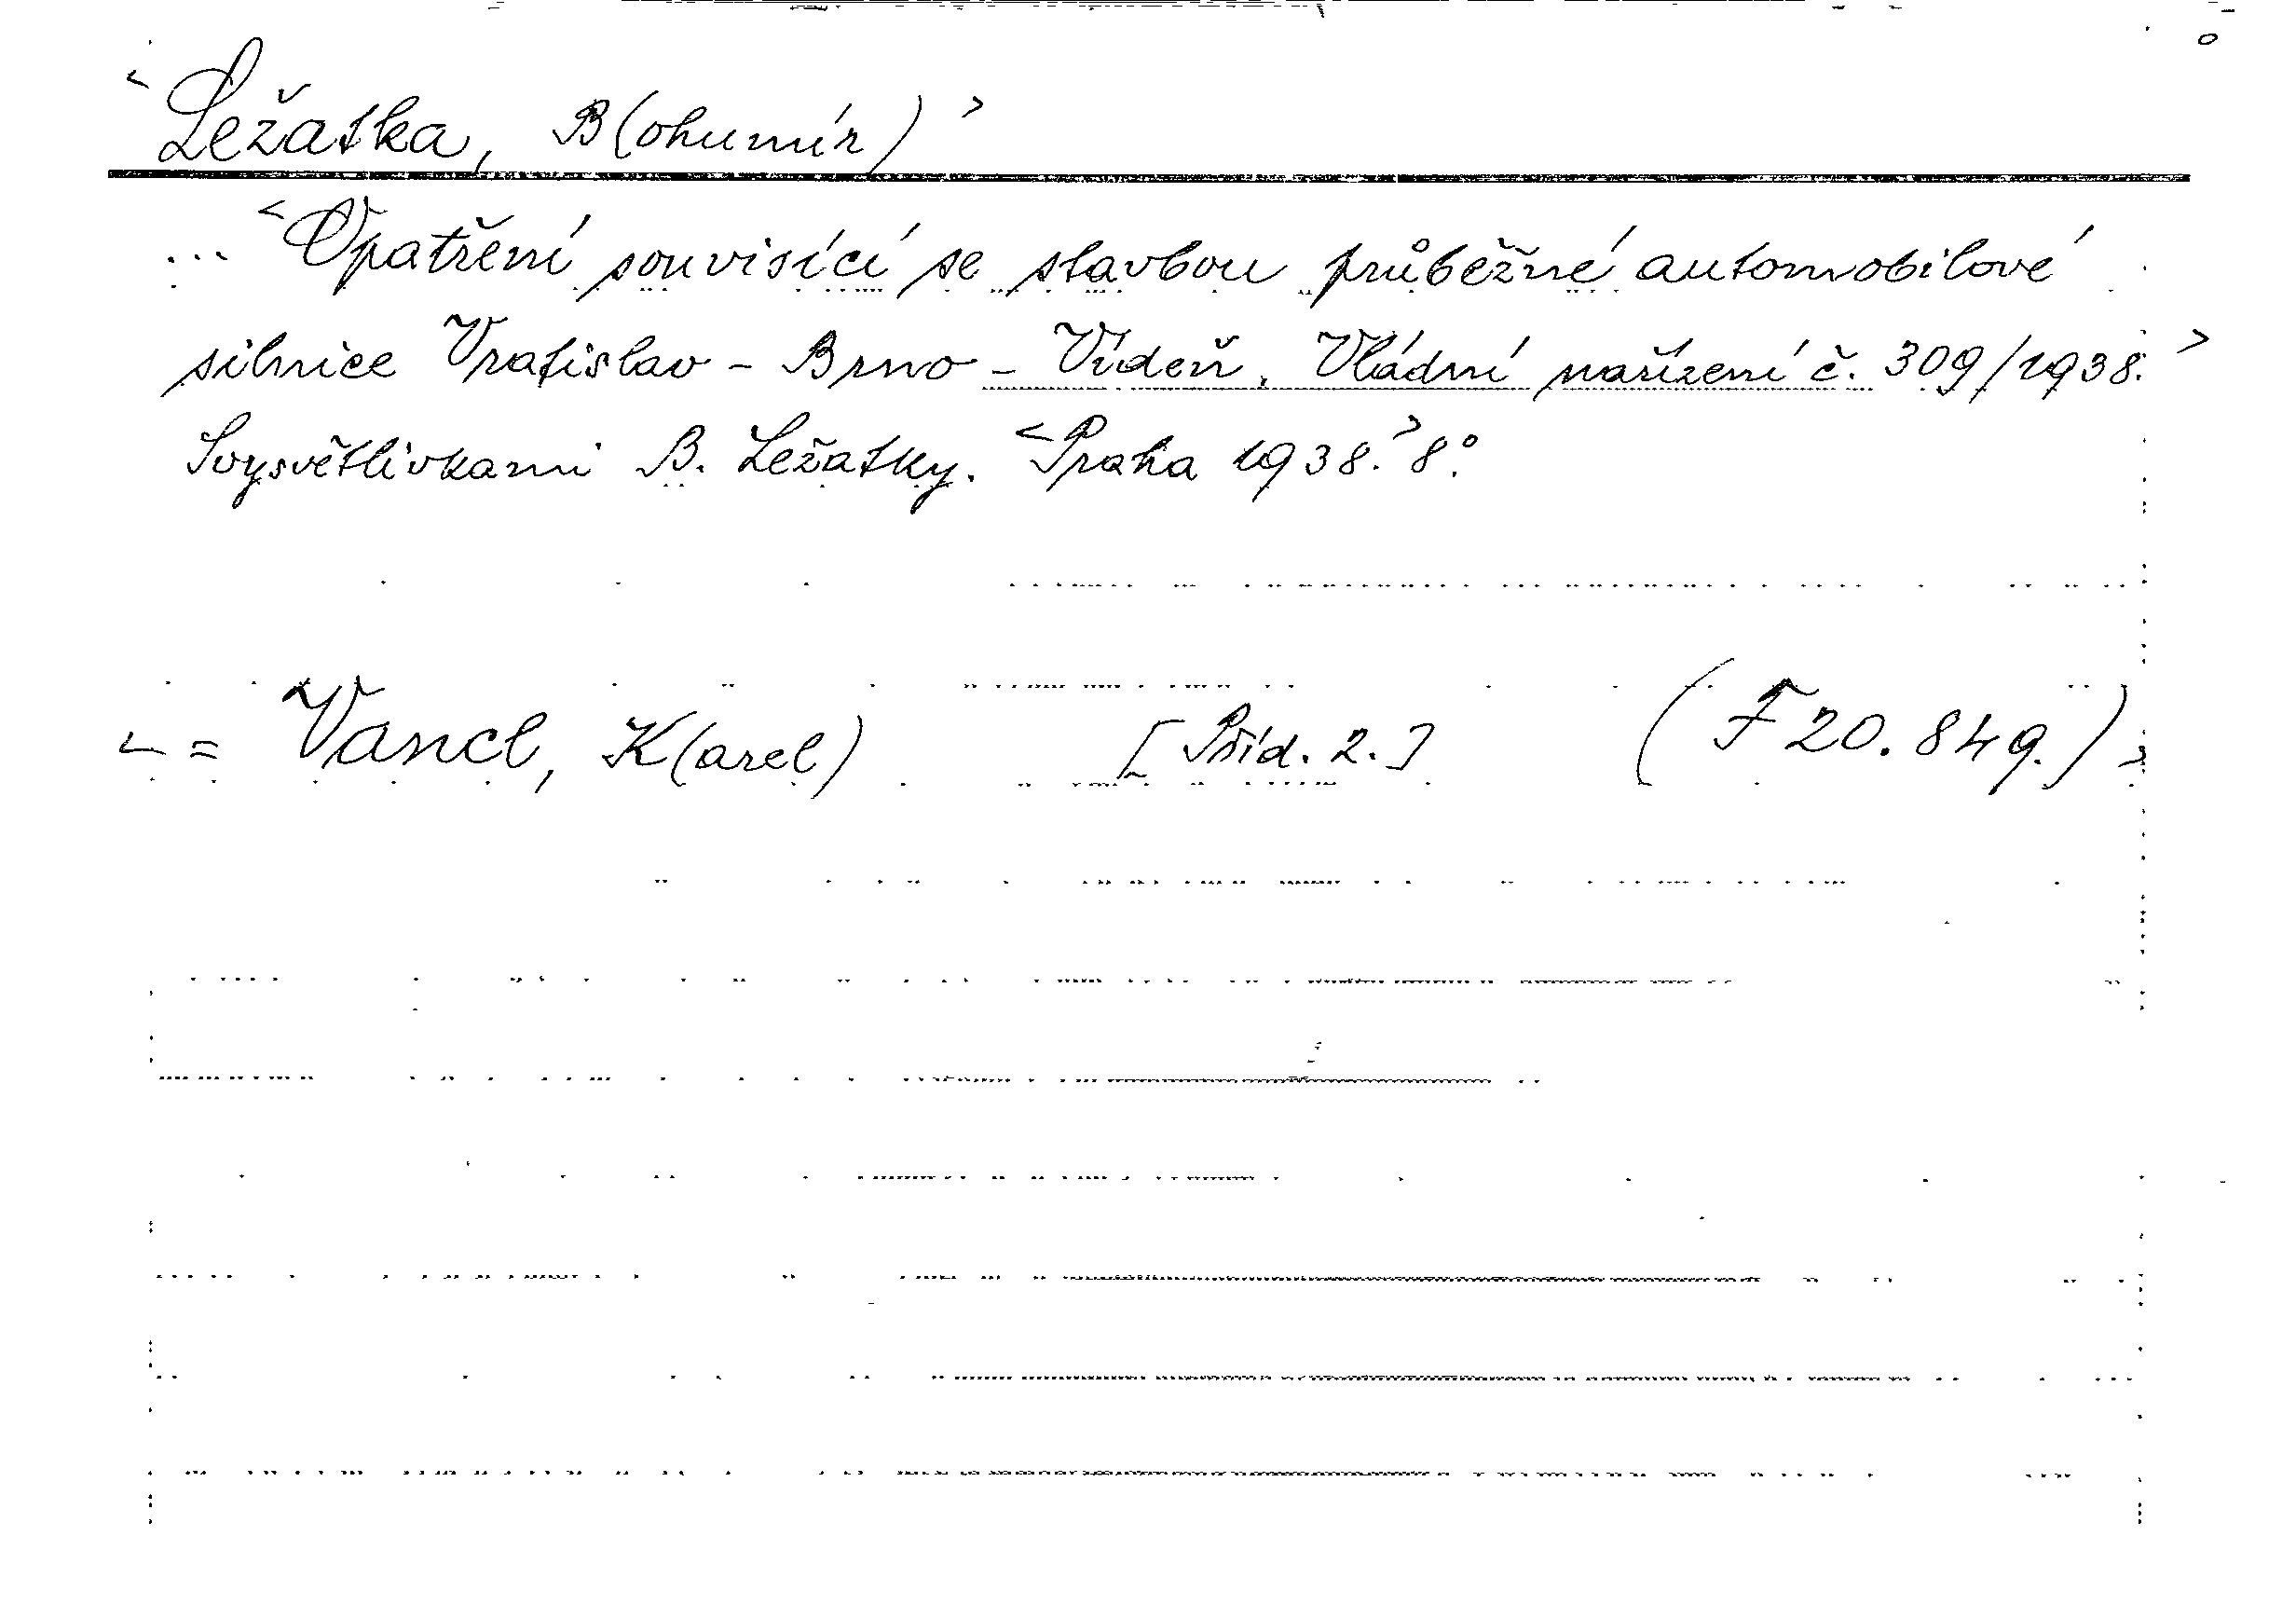 <Ležatka, B(ohumír)>
... <Opatření souvisící se stavbou průběžné automobilové
silnice Vratislav - Brno - Vídeň. Vládní nařízení č. 309/1938.>
S vysvětlivkami B. Ležatky. <Praha 1938.> 8°.
<= Vancl, K(arel) [Příd. 2.] (F 20.849.)>